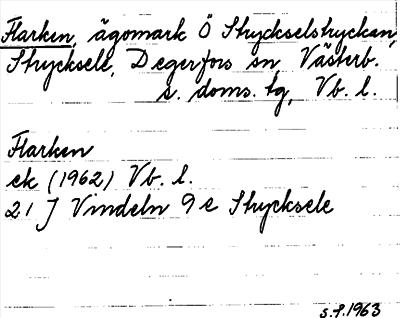 Flarken, ägomark Ö Stryckselstryckan,
Strycksele, Degerfors sn, Västerb.
s. doms. tg, Vb. l.
Flarken
ek (1962) Vb. l.
21 J Vindeln 9 e Strycksele
S.F. 1963